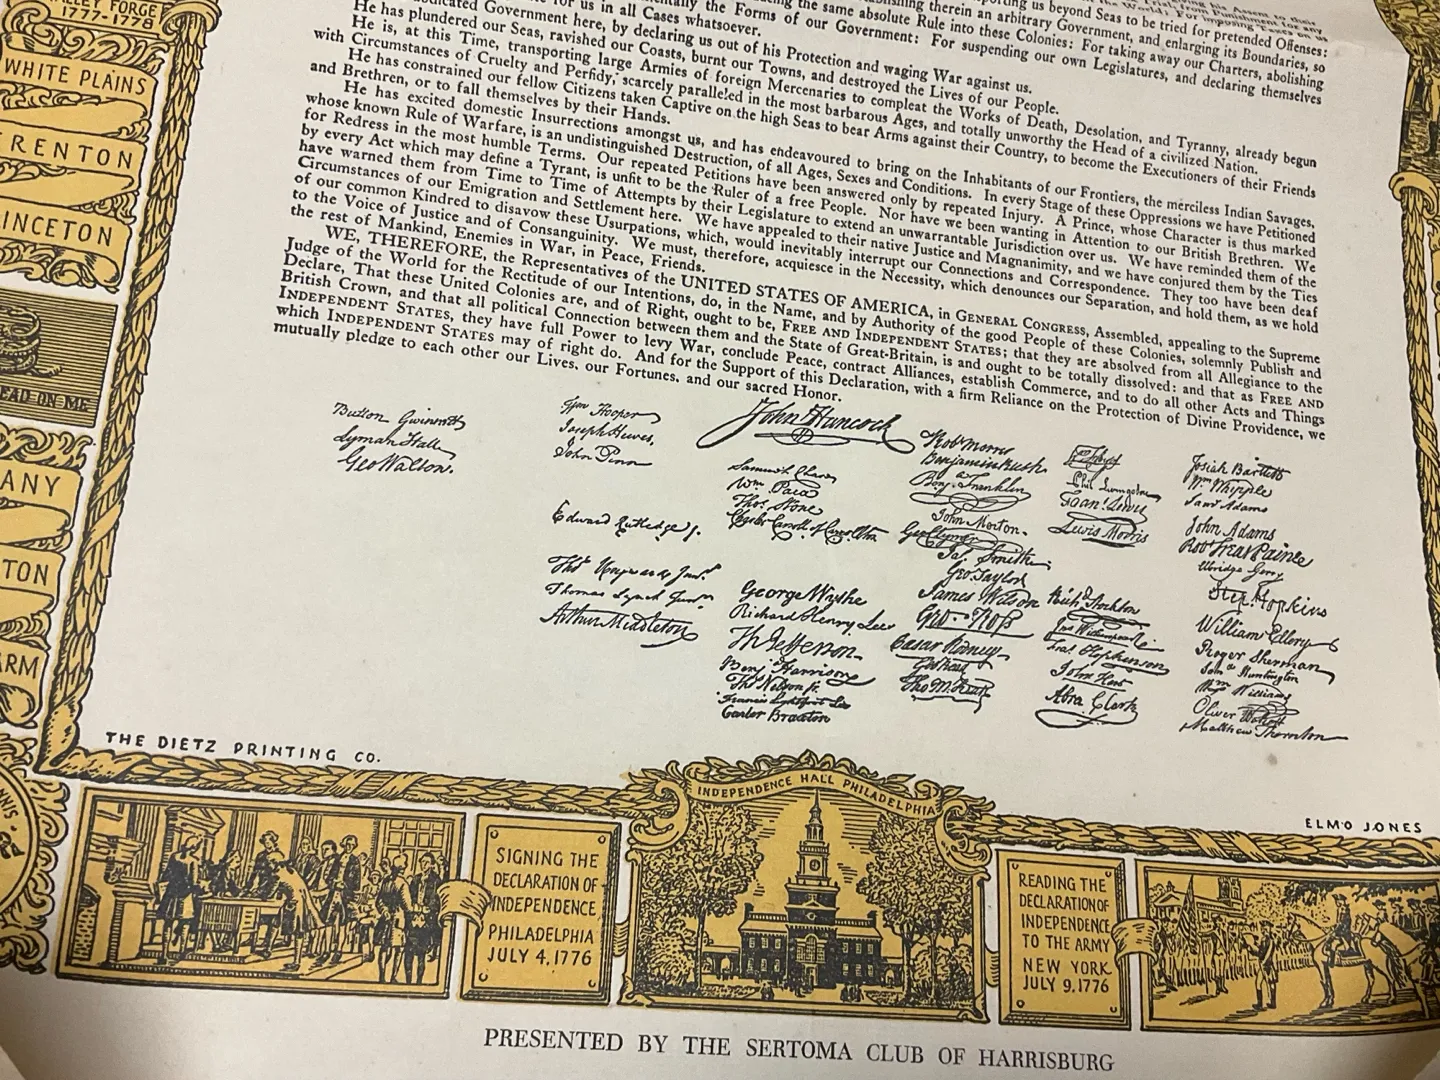 VALLEY FORGE
1777-1778
WHITE PLAINS
TRENTON
PRINCETON
TREAD ON ME
ANY
TON
ARM
us beyond Seas to be tried for pretended Offenses:
therein an arbitrary Government, and enlarging its Boundaries, so
the same absolute Rule into these Colonies: For taking away our Charters, abolishing
the Forms of our Government: For suspending our own Legislatures, and declaring themselves
for us in all Cases whatsoever.
Government here, by declaring us out of his Protection and waging War against us.
He has plundered our Seas, ravished our Coasts, burnt our Towns, and destroyed the Lives of our People.
He is, at this Time, transporting large Armies of foreign Mercenaries to compleat the Works of Death, Desolation, and Tyranny, already begun
with Circumstances of Cruelty and Perfidy, scarcely paralleled in the most barbarous Ages, and totally unworthy the Head of a civilized Nation.
He has constrained our fellow Citizens taken Captive on the high Seas to bear Arms against their Country, to become the Executioners of their Friends
and Brethren, or to fall themselves by their Hands.
He has excited domestic Insurrections amongst us, and has endeavoured to bring on the Inhabitants of our Frontiers, the merciless Indian Savages,
whose known Rule of Warfare, is an undistinguished Destruction, of all Ages, Sexes and Conditions. In every Stage of these Oppressions we have Petitioned
for Redress in the most humble Terms. Our repeated Petitions have been answered only by repeated Injury. A Prince, whose Character is thus marked
by every Act which may define a Tyrant, is unfit to be the Ruler of a free People. Nor have we been wanting in Attention to our British Brethren. We
have warned them from Time to Time of Attempts by their Legislature to extend an unwarrantable Jurisdiction over us. We have reminded them of the
Circumstances of our Emigration and Settlement here. We have appealed to their native Justice and Magnanimity, and we have conjured them by the Ties
of our common Kindred to disavow these Usurpations, which, would inevitably interrupt our Connections and Correspondence. They too have been deaf
to the Voice of Justice and of Consanguinity. We must, therefore, acquiesce in the Necessity, which denounces our Separation, and hold them, as we hold
the rest of Mankind, Enemies in War, in Peace, Friends.
WE, THEREFORE, the Representatives of the UNITED STATES OF AMERICA, in GENERAL CONGRESS, Assembled, appealing to the Supreme
Judge of the World for the Rectitude of our Intentions, do, in the Name, and by Authority of the good People of these Colonies, solemnly Publish and
Declare, That these United Colonies are, and of Right, ought to be, FREE AND INDEPENDENT STATES; that they are absolved from all Allegiance to the
British Crown, and that all political Connection between them and the State of Great-Britain, is and ought to be totally dissolved: and that as FREE AND
INDEPENDENT STATES, they have full Power to levy War, conclude Peace, contract Alliances, establish Commerce, and to do all other Acts and Things
which INDEPENDENT STATES may of right do. And for the Support of this Declaration, with a firm Reliance on the Protection of Divine Providence, we
mutually pledge to each other our Lives, our Fortunes, and our sacred Honor.
Button Gwinnett
Lyman Hall
Geo Walton.
Wm Hooper
Joseph Hewes,
John Penn
Edward Rutledge
Thos Heyward Junr.
Thomas Lynch Junr.
Arthur Middleton
John Hancock
Samuel Chase
Wm Paca
Thos Stone
Charles Carroll of Carrollton
George Wythe
Richard Henry Lee
Th Jefferson
Benj Harrison
Thos Nelson jr.
Francis Lightfoot Lee
Carter Braxton
Robt Morris
Benjamin Rush
Benj. Franklin
John Morton
Geo Clymer
Jas. Smith
Geo. Taylor
James Wilson
Geo. Ross
Caesar Rodney
Geo Read
Tho M:Kean
Phil. Livingston
Frans. Lewis
Lewis Morris
Richd. Stockton
Jno Witherspoon
Fras. Hopkinson
John Hart
Abra Clark
Josiah Bartlett
Wm. Whipple
Saml Adams
John Adams
Robt Treat Paine
Elbridge Gerry
Step. Hopkins
William Ellery
Roger Sherman
Sam Huntington
Wm Williams
Oliver Wolcott
Matthew Thornton
THE DIETZ PRINTING CO.
ELMO JONES
INDEPENDENCE HALL PHILADELPHIA
SIGNING THE
DECLARATION OF
INDEPENDENCE
PHILADELPHIA
JULY 4, 1776
READING THE
DECLARATION OF
INDEPENDENCE
TO THE ARMY
NEW YORK
JULY 9, 1776
PRESENTED BY THE SERTOMA CLUB OF HARRISBURG